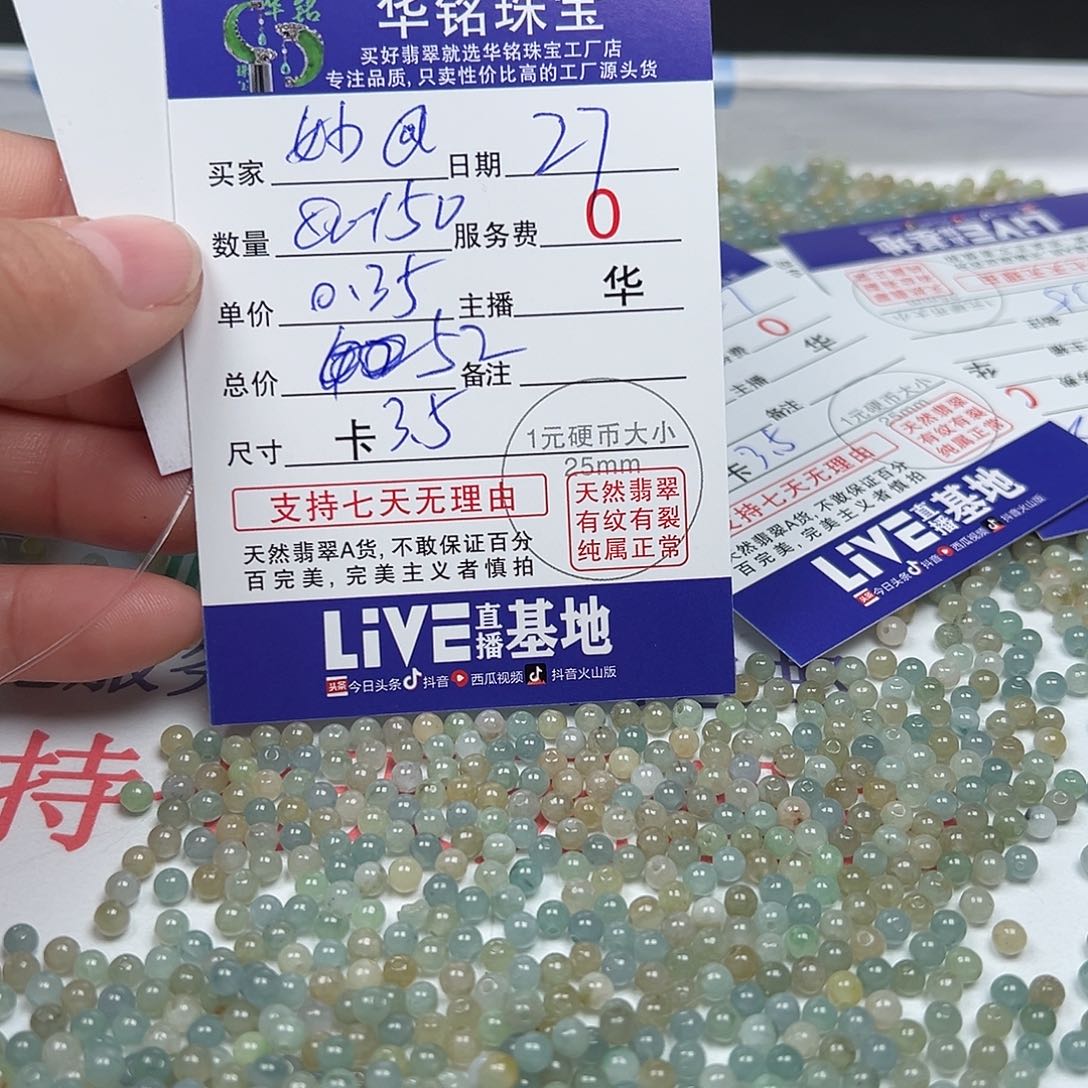 华铭
珠宝
华铭珠宝
买好翡翠就选华铭珠宝工厂店
专注品质,只卖性价比高的工厂源头货
买家 妙 日期 27
数量 150 服务费 0
单价 0.35 主播 华
总价 52 备注
尺寸 卡 3.5
1元硬币大小
25mm
支持七天无理由
天然翡翠
有纹有裂
纯属正常
天然翡翠A货,不敢保证百分
百完美,完美主义者慎拍
LiVE直播基地
头条 今日头条 抖音 西瓜视频 抖音火山版
LiVE直播基地
七天无理由
1元硬币大小
25mm
费 0
主播 华
备注
卡 3.5
1元硬币大小
25mm
天然翡翠
有纹有裂
纯属正常
支持七天无理由
天然翡翠A货,不敢保证百分
百完美,完美主义者慎拍
LiVE直播基地
头条 今日头条 抖音 西瓜视频 抖音火山版
华
备注
持